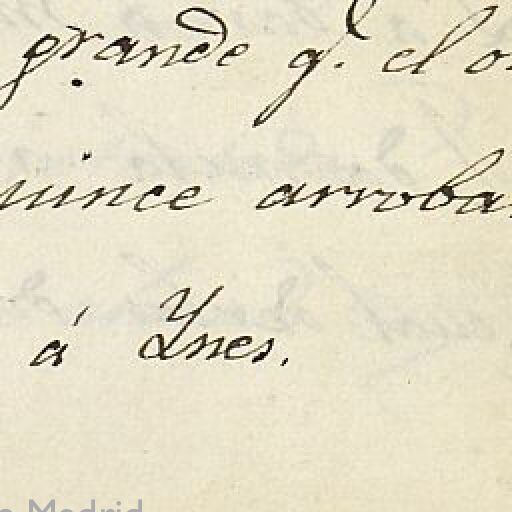 grande q.ᵉ el o
quince arroba
á Ynes.
Madrid